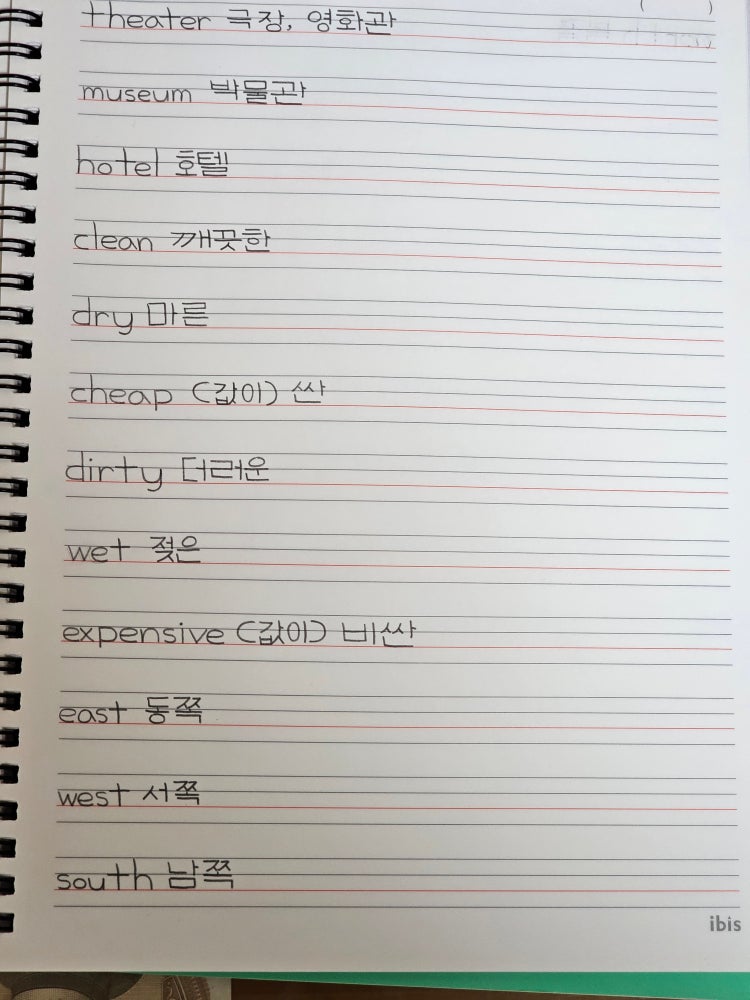 theater 극장, 영화관
museum 박물관
hotel 호텔
clean 깨끗한
dry 마른
cheap (값이) 싼
dirty 더러운
wet 젖은
expensive (값이) 비싼
east 동쪽
west 서쪽
south 남쪽
ibis